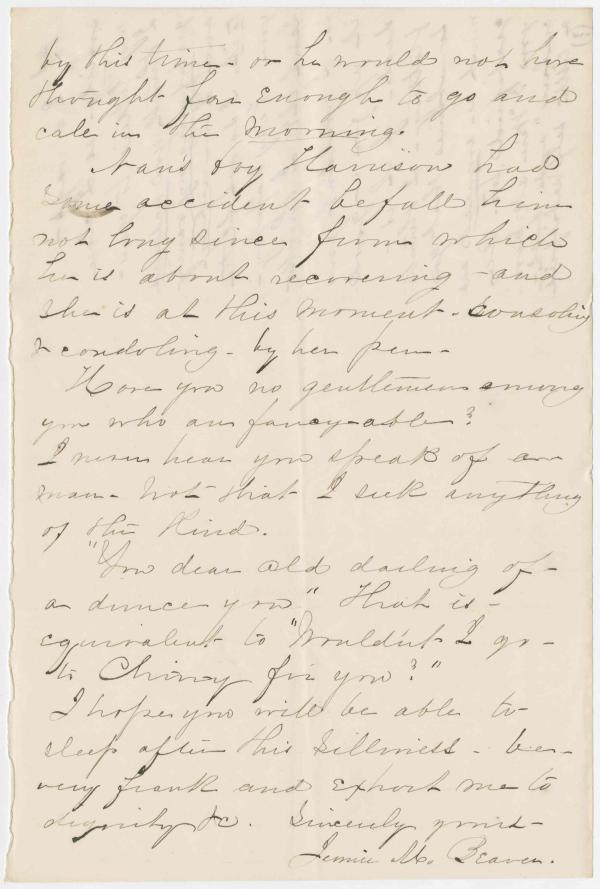 by this time - or he would not have
thought far enough to go and
call in the morning.
Nan's boy Harrison had
some accident befall him
not long since from which
he is about recovering - and
she is at this moment - consoling
& condoling - by her pen -
Have you no gentlemen among
you who are fancy-able?
I never hear you speak of a
man - not that I seek anything
of the kind.
"You dear old darling of -
a dunce you" That is -
equivalent to "Wouldn't I go -
to Chiny for you?"
I hope you will be able to
sleep after this silliness - be -
very frank and exhort me to
dignity &c. Sincerely yours -
Jennie M. Beaven.